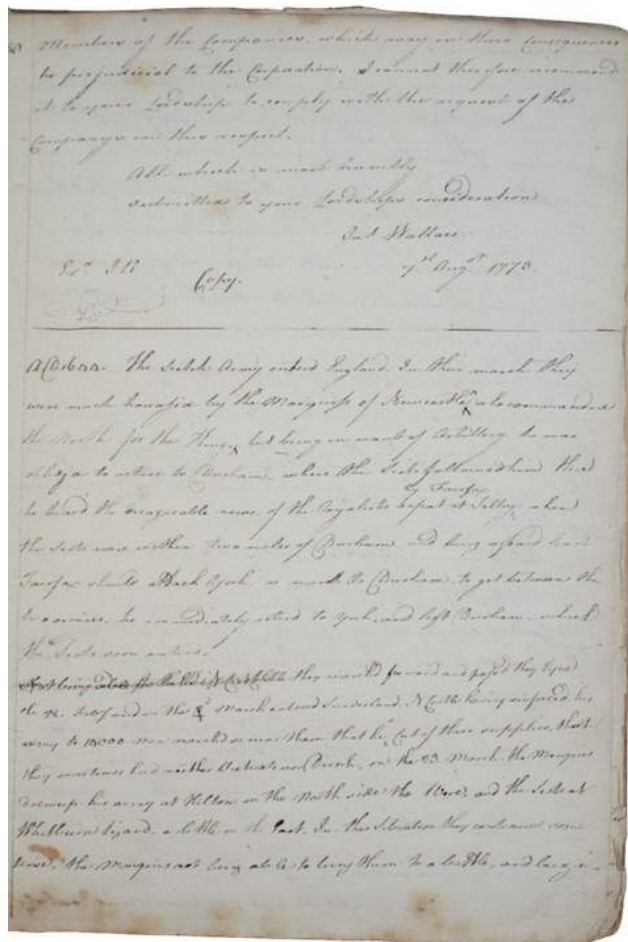 Members of the Companies, which may in their Consequences
be prejudicial to the Corporation. I cannot therefore recommend
it to your Lordships to comply with the request of the
Companys in this respect.
All which is most humbly
submitted to your Lordships consideration
Jas Wallace.
7th Augst 1773.
Copy.
The Scotch Army enterd England. In their march they
were much harrass'd by the Marquess of Newcastle who commanded
the North for the King, but being in want of Artillery he was
oblig'd to retire to Durham, where the Scots followed him there
he heard the disagreeable news of the Royalists defeat at Selby when
by Fairfax
the Scots were within two miles of Durham, and being afraid
Fairfax should attack York or march to Durham to get between the
two armies, he immediately retired to York, and left Durham which
the Scots soon entred.
they march'd forward and pass'd they Tyne
the 28 and on the March enterd Sunderland. having reinforced his
army to 14000 men march'd so near them that he Cut of their supplies, that
they sometimes had neither Victuals nor Drink, on the 23 March the Marquis
drew up his army at Hilton on the North side the Were, and the Scots at
Whitburn Lizard, a little on the East. In this Situation they continued some
time, the Marquis not being able to bring them to a battle, and